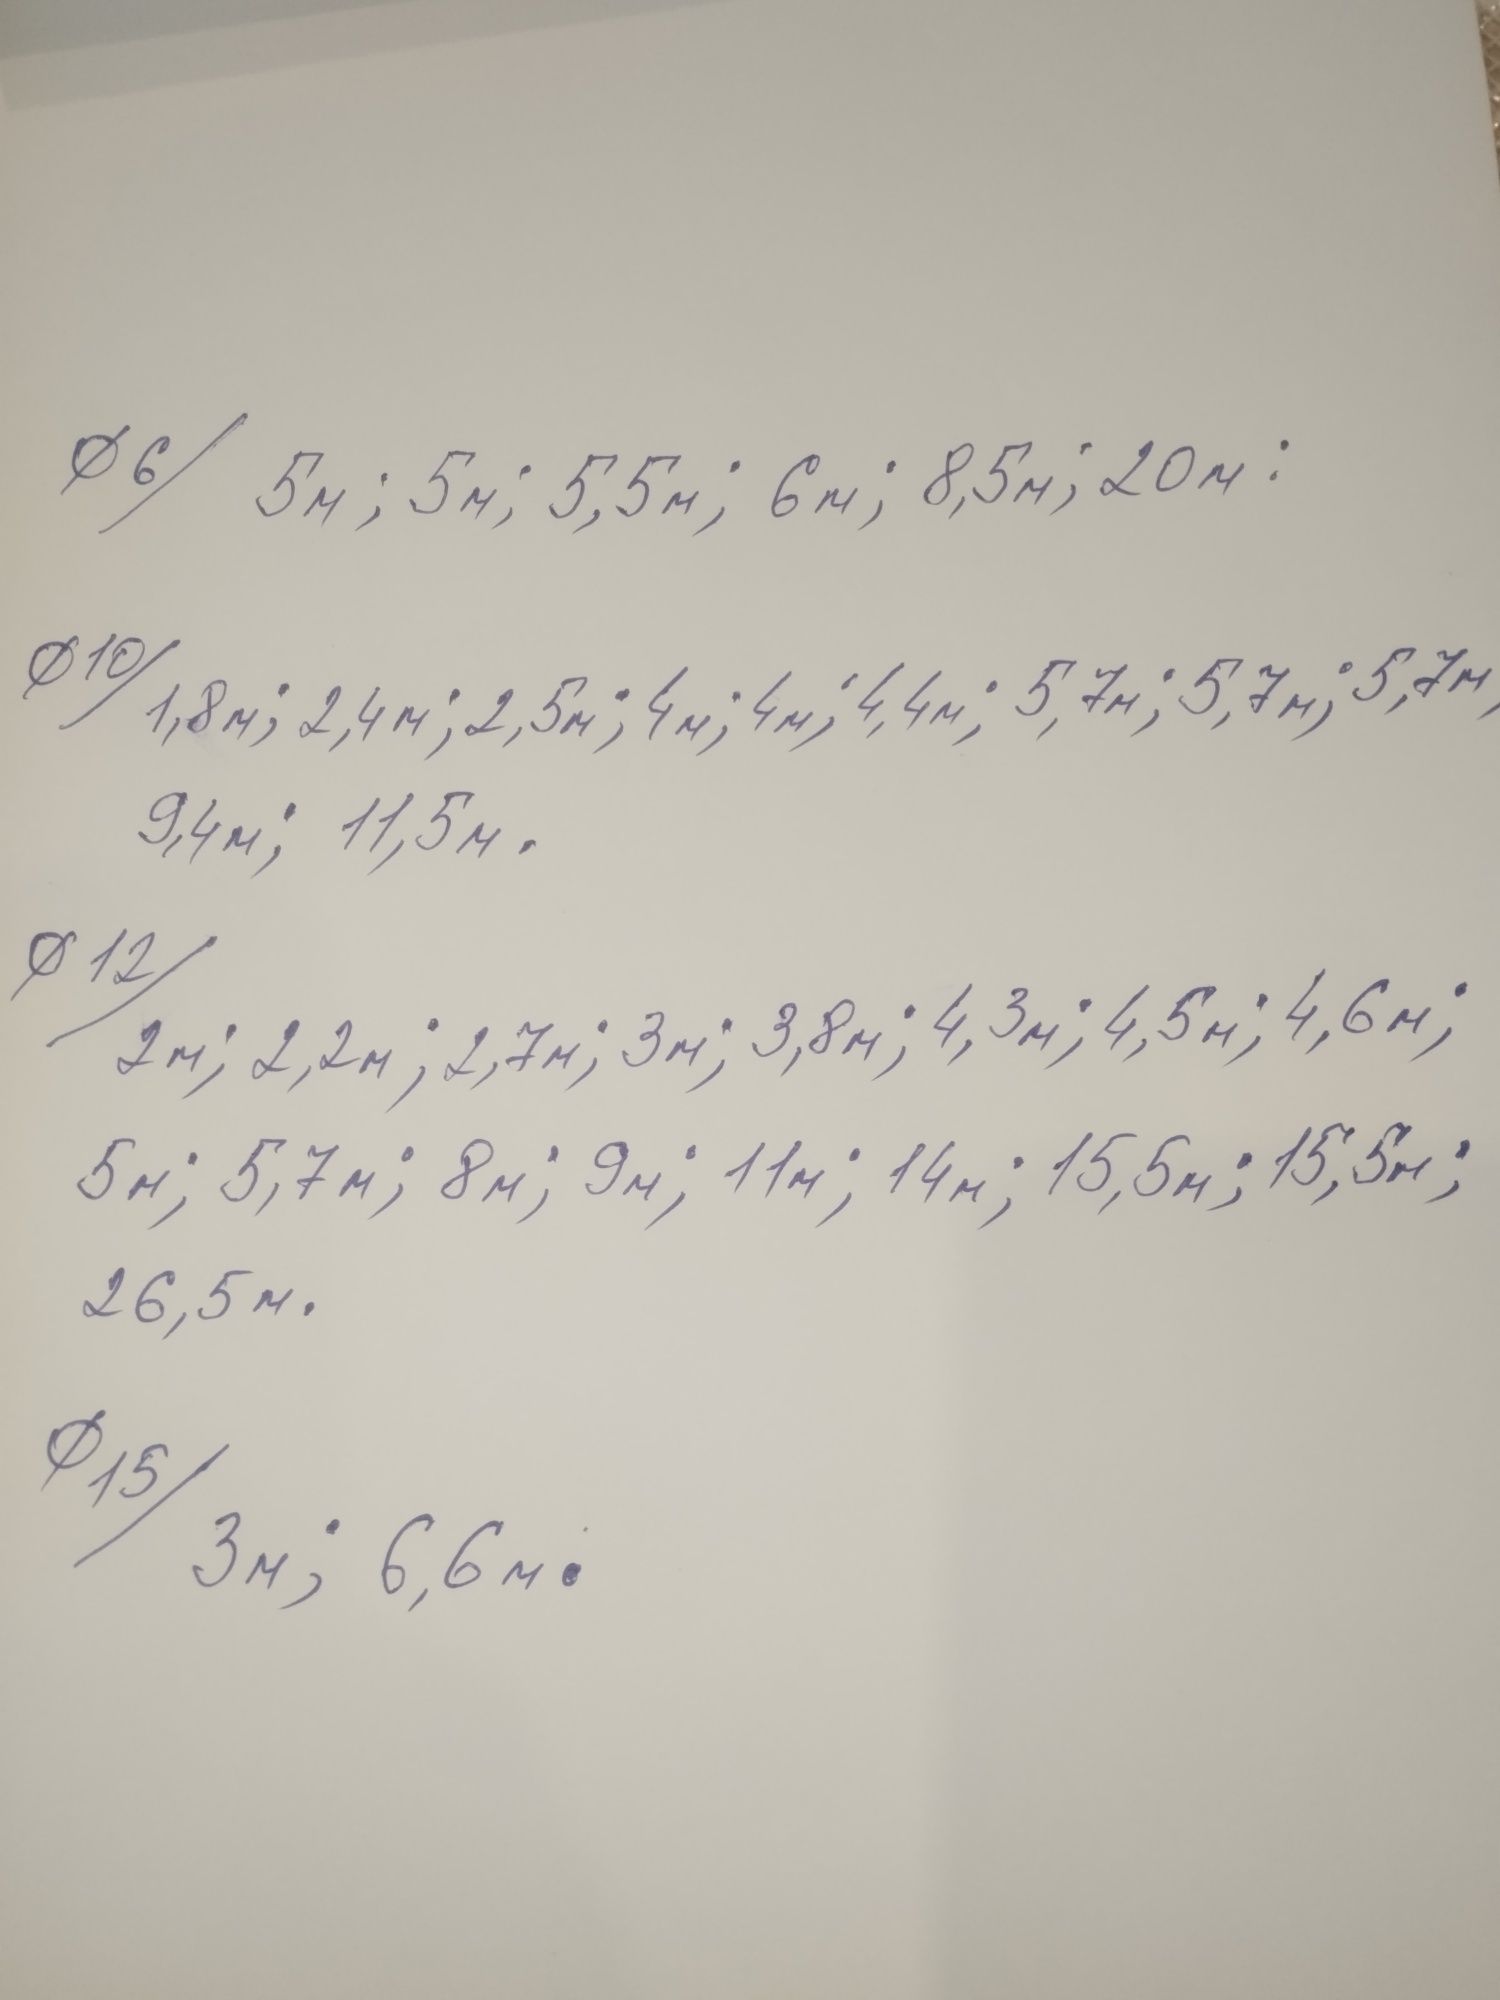 Ø6/ 5м; 5м; 5,5м; 6м; 8,5м; 20м:
Ø10/ 1,8м; 2,4м; 2,5м; 4м; 4м; 4,4м; 5,7м; 5,7м; 5,7м,
9,4м; 11,5м.
Ø12/
2м; 2,2м; 2,7м; 3м; 3,8м; 4,3м; 4,5м; 4,6м;
5м; 5,7м; 8м; 9м; 11м; 14м; 15,5м; 15,5м;
26,5м.
Ø15/
3м; 6,6м.